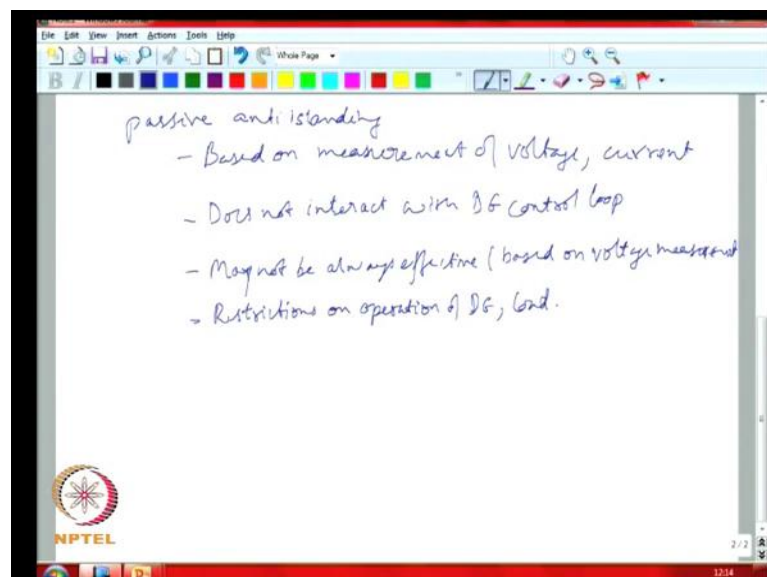 File Edit View Insert Actions Tools Help
Whole Page
B I
passive anti islanding
- Based on measurement of voltage, current
- Does not interact with DG control loop
- May not be always effective (based on voltage measurement
- Restrictions on operation of DG, load.
NPTEL
2/2
12:14